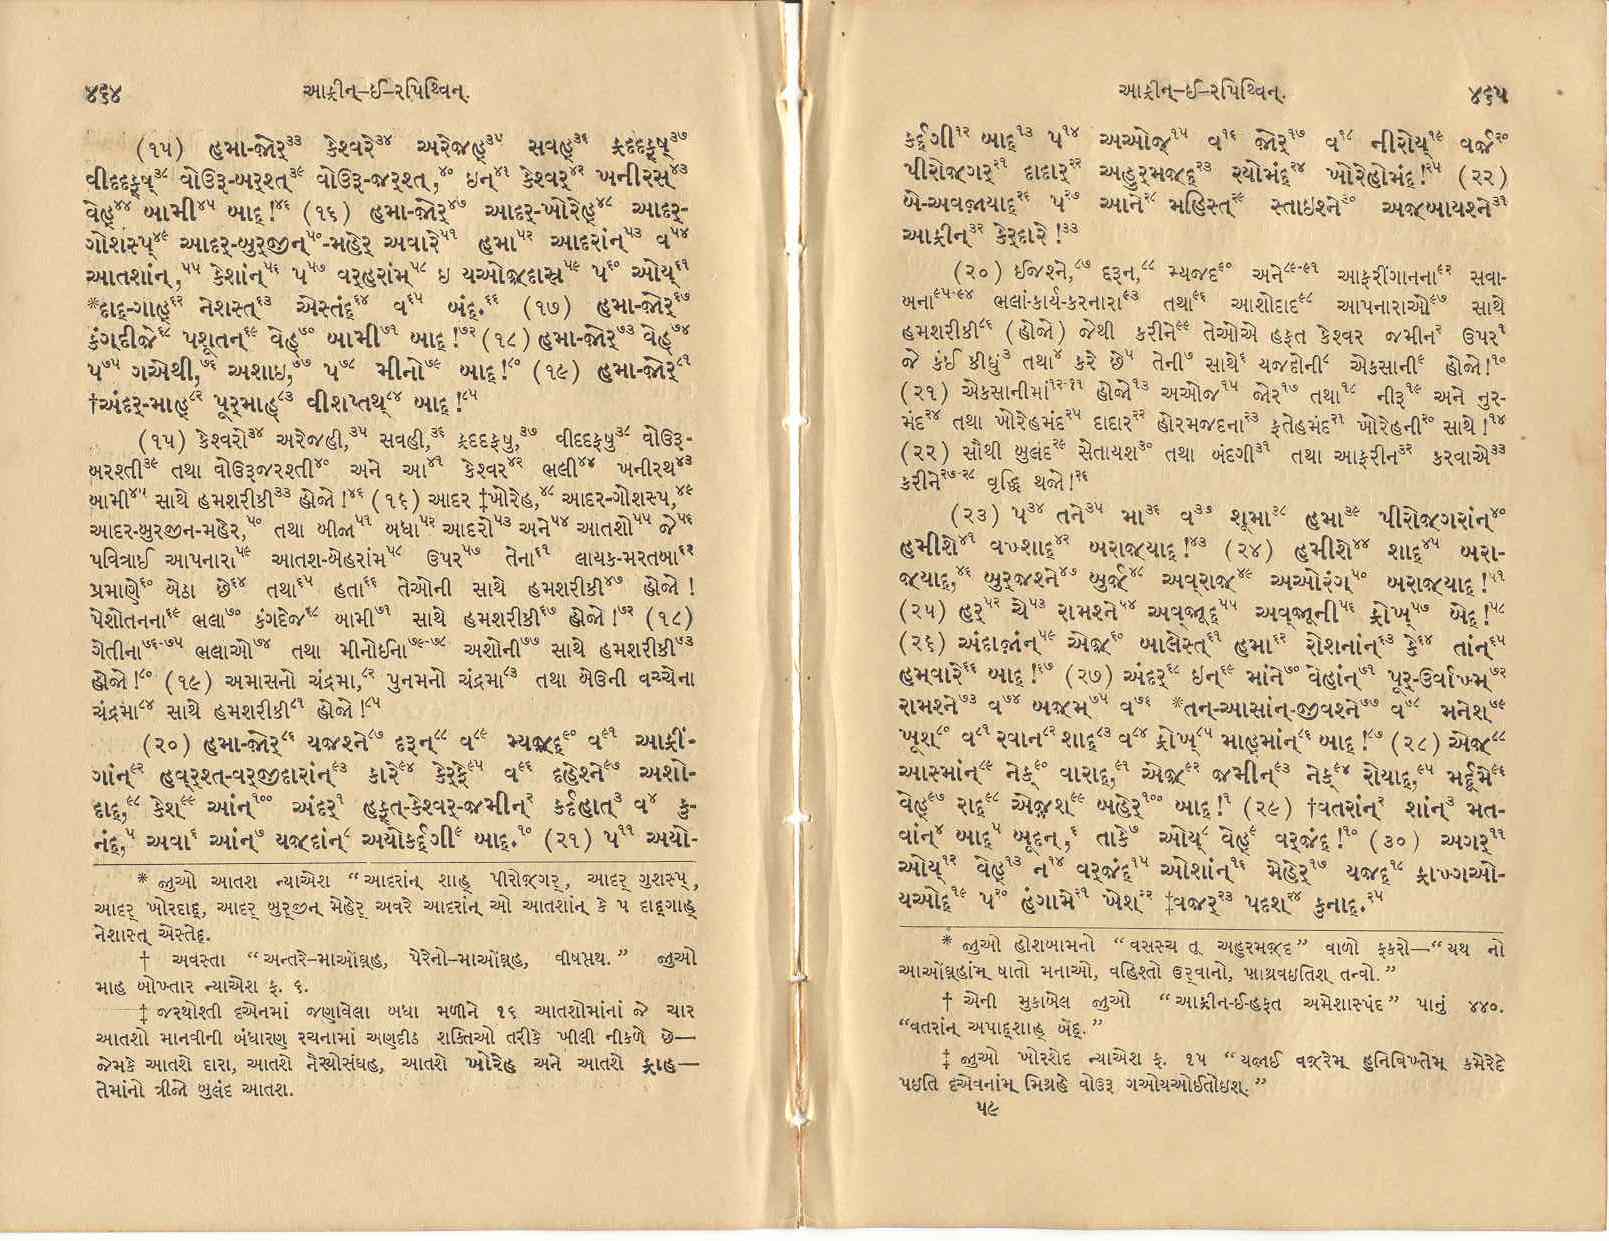 ૪૬૪ આફ્રીન્-ઈ-રપિથ્વિન્.
(૧૫) હમા-જોર્³³ કેશ્વરે³⁴ અરેજહ્³⁵ સવહ્³⁶ ફ્રદદફ્ષ્³⁷
વીદદફ્ષ્³⁸ વોઉરૂ-બર્શ્ત્³⁹ વોઉરૂ-જર્શ્ત્,⁴⁰ ઇન્⁴¹ કેશ્વર્⁴² ખનીરસ્⁴³
વેહ્⁴⁴ બામી⁴⁵ બાદ્!⁴⁶ (૧૬) હમા-જોર્⁴⁷ આદર્-ખોરેહ્⁴⁸ આદર્-
ગોશસ્પ્⁴⁹ આદર્-બુર્જીન્⁵⁰-મહેર્ અવારે⁵¹ હમા⁵² આદરાંન્⁵³ વ⁵⁴
આતશાંન્,⁵⁵ કેશાંન્⁵⁶ પ⁵⁷ વર્હરાંમ્⁵⁸ ઇ યઓજદાસ્ર⁵⁹ પ⁶⁰ ઓય્⁶¹
*દાદ્-ગાહ્⁶² નેશસ્ત્⁶³ એસ્તંદ્⁶⁴ વ⁶⁵ બંદ્.⁶⁶ (૧૭) હમા-જોર્⁶⁷
કંગદીજે⁶⁸ પશૂતન્⁶⁹ વેહ્⁷⁰ બામી⁷¹ બાદ્!⁷² (૧૮) હમા-જોર્⁷³ વેહ્⁷⁴
પ⁷⁵ ગએથી,⁷⁶ અશાઇ,⁷⁷ પ⁷⁸ મીનો⁷⁹ બાદ્!⁸⁰ (૧૯) હમા-જોર્⁸¹
†અંદર્-માહ્⁸² પૂર્માહ્⁸³ વીશપ્તથ્⁸⁴ બાદ્!⁸⁵
(૧૫) કેશ્વરો³⁴ અરેજહી,³⁵ સવહી,³⁶ ફ્રદદફષુ,³⁷ વીદદફષુ³⁸ વોઉરૂ-
બરશ્તી³⁹ તથા વોઉરૂજરશ્તી⁴⁰ અને આ⁴¹ કેશ્વર⁴² ભલી⁴⁴ ખનીરથ⁴³
બામી⁴⁵ સાથે હમશરીકી³³ હોજો!⁴⁶ (૧૬) આદર ‡ખોરેહ,⁴⁸ આદર-ગોશસ્પ,⁴⁹
આદર-બુરજીન-મહેર,⁵⁰ તથા બીજા⁵¹ બધા⁵² આદરો⁵³ અને⁵⁴ આતશો⁵⁵ જે⁵⁶
પવિત્રાઈ આપનારા⁵⁹ આતશ-બેહરાંમ⁵⁸ ઉપર⁵⁷ તેના⁶¹ લાયક-મરતબા⁶²
પ્રમાણે⁶⁰ બેઠા છે⁶⁴ તથા⁶⁵ હતા⁶⁶ તેઓની સાથે હમશરીકી⁴⁷ હોજો!
પેશોતનના⁶⁹ ભલા⁷⁰ કંગદેજ⁶⁸ બામી⁷¹ સાથે હમશરીકી⁶⁷ હોજો!⁷² (૧૮)
ગેતીના⁷⁶⁻⁷⁵ ભલાઓ⁷⁴ તથા મીનોઈના⁷⁹⁻⁷⁸ અશોની⁷⁷ સાથે હમશરીકી⁷³
હોજો!⁸⁰ (૧૯) અમાસનો ચંદ્રમા,⁸² પુનમનો ચંદ્રમા⁸³ તથા બેઉની વચ્ચેના
ચંદ્રમા⁸⁴ સાથે હમશરીકી⁸¹ હોજો!⁸⁵
(૨૦) હમા-જોર્⁸⁶ યજશ્ને⁸⁷ દરૂન્⁸⁸ વ⁸⁹ મ્યજ્દ્⁹⁰ વ⁹¹ આફ્રીં-
ગાંન્⁹² હવર્શ્ત-વર્જીદારાંન્⁹³ કારે⁹⁴ કેર્ફે⁹⁵ વ⁹⁶ દહેશ્ને⁹⁷ અશો-
દાદ્,⁹⁸ કેશ⁹⁹ આંન્¹⁰⁰ અંદર્¹ હફ્ત-કેશ્વર્-જમીન્² કર્દહાત્³ વ⁴ કુ-
નંદ્,⁵ અવા⁶ આંન્⁷ યજદાંન્⁸ અયોકર્દ્દગી⁹ બાદ્.¹⁰ (૨૧) પ¹¹ અયો-
* જુઓ આતશ ન્યાએશ “આદરાંન્ શાહ્ પીરોજ્ગર્, આદર્ ગુશસ્પ્,
આદર્ ખોરદાદ્, આદર્ બુર્જીન્ મેહેર્ અવરે આદરાંન્ ઓ આતશાંન્ કે પ દાદ્ગાહ્
નેશાસ્ત્ એસ્તેદ્.
† અવસ્તા “અન્તરે-માઓંઙ્હ, પેરેનો-માઓંઙ્હ, વીષપ્તથ.” જુઓ
માહ બોખ્તાર ન્યાએશ ફ. ૬.
‡ જરથોશ્તી દએનમાં જણાવેલા બધા મળીને ૧૬ આતશોમાંનાં જે ચાર
આતશો માનવીની બંધારણ રચનામાં અણદીઠ શક્તિઓ તરીકે ખીલી નીકળે છે—
જેમકે આતશે દારા, આતશે નૈર્યોસંઘહ, આતશે ખોરેહ અને આતશે ફ્રાહ—
તેમાંનો ત્રીજો બુલંદ આતશ.
આફ્રીન્-ઈ-રપિથ્વિન્. ૪૬૫
કર્દ્દગી¹² બાદ્¹³ પ¹⁴ અઓજ્¹⁵ વ¹⁶ જોર્¹⁷ વ¹⁸ નીરોય્¹⁹ વર્જ²⁰
પીરોજગર્²¹ દાદાર્²² અહુર્મજદ્²³ રયોમંદ્²⁴ ખોરેહોમંદ્!²⁵ (૨૨)
બે-અવજાયાદ્²⁶ પ²⁷ આને²⁸ મહિસ્ત્²⁹ સ્તાઇશ્ને³⁰ અજબાયશ્ને³¹
આફ્રીન્³² કેર્દારે!³³
(૨૦) ઈજશ્ને,⁸⁷ દરૂન,⁸⁸ મ્યજદ⁹⁰ અને⁸⁹⁻⁹¹ આફરીંગાનના⁹² સવા-
બના⁹⁵⁻⁹⁴ ભલાં-કાર્ય-કરનારા⁹³ તથા⁹⁶ આશોદાદ⁹⁸ આપનારાઓ⁹⁷ સાથે
હમશરીકી⁸⁶ (હોજો) જેથી કરીને⁹⁹ તેઓએ હફત કેશ્વર જમીન² ઉપર¹
જે કંઈ કીધું³ તથા⁴ કરે છે⁵ તેની⁷ સાથે⁶ યજદોની⁸ એકસાની⁹ હોજો!¹⁰
(૨૧) એકસાનીમાં¹²⁻¹¹ હોજો¹³ અઓજ¹⁵ જોર¹⁷ તથા¹⁸ નીરૂ¹⁹ અને નુર-
મંદ²⁴ તથા ખોરેહમંદ²⁵ દાદાર²² હોરમજદના²³ ફતેહમંદ²¹ ખોરેહની²⁰ સાથે!¹⁴
(૨૨) સૌથી બુલંદ²⁹ સેતાયશ³⁰ તથા બંદગી³¹ તથા આફરીન³² કરવાએ³³
કરીને²⁷⁻²⁸ વૃદ્ધિ થજો!²⁶
(૨૩) પ³⁴ તને³⁵ મા³⁶ વ³⁷ શૂમા³⁸ હમા³⁹ પીરોજગરાંન્⁴⁰
હમીશે⁴¹ વખ્શાદ્⁴² બરાજયાદ્!⁴³ (૨૪) હમીશે⁴⁴ શાદ્⁴⁵ બરા-
જયાદ્,⁴⁶ બુર્જશ્ને⁴⁷ બુર્જ⁴⁸ અવ્રાજ⁴⁹ અઓરંગ્⁵⁰ બરાજયાદ્!⁵¹
(૨૫) હર્⁵² ચે⁵³ રામશ્ને⁵⁴ અવજૂદ્⁵⁵ અવજૂની⁵⁶ ફ્રોખ્⁵⁷ બેદ્!⁵⁸
(૨૬) અંદાજાંન્⁵⁹ એજ⁶⁰ બાલેસ્ત્⁶¹ હમા⁶² રોશનાંન્⁶³ કે⁶⁴ તાંન્⁶⁵
હમવારે⁶⁶ બાદ્!⁶⁷ (૨૭) અંદર્⁶⁸ ઇન્⁶⁹ માંને⁷⁰ વેહાંન્⁷¹ પૂર્-ઉર્વાખ્મ્⁷²
રામશ્ને⁷³ વ⁷⁴ બજમ્⁷⁵ વ⁷⁶ *તન્-આસાંન્-જીવશ્ને⁷⁷ વ⁷⁸ મનેશ⁷⁹
ખૂશ⁸⁰ વ⁸¹ રવાન⁸² શાદ્⁸³ વ⁸⁴ ફ્રોખ્⁸⁵ માહ્માંન્⁸⁶ બાદ્!⁸⁷ (૨૮) એજ⁸⁸
આસ્માંન્⁸⁹ નેક્⁹⁰ વારાદ્,⁹¹ એજ⁹² જમીન્⁹³ નેક્⁹⁴ રોયાદ્,⁹⁵ મર્દ્દૂમે⁹⁶
વેહ્⁹⁷ રાદ્⁹⁸ એજશ⁹⁹ બહેર્¹⁰⁰ બાદ્!¹ (૨૯) †વતરાંન્² શાંન્³ મત-
વાંન્⁴ બાદ્⁵ બૂદન્,⁶ તાકે⁷ ઓય્⁸ વેહ્⁹ વર્જંદ્!¹⁰ (૩૦) અગર્¹¹
ઓય્¹² વેહ્¹³ ન¹⁴ વર્જંદ્¹⁵ ઓશાંન્¹⁶ મેહેર્¹⁷ યજદ્¹⁸ ફ્રાખ્ગઓ-
યઓદ્¹⁹ પ²⁰ હંગામે²¹ ખેશ²² ‡વજર્²³ પદશ²⁴ કુનાદ્.²⁵
* જુઓ હોશબામનો “વસસ્ચ તૂ અહુરમજ્દ” વાળો ફકરો—“યથ નો
આઓંઙ્હાંમ્ ષાતો મનાઓ, વહિશ્તો ઉર્વાનો, ખ્વાથ્રવઇતિશ્ તન્વો.”
† એની મુકાબેલ જુઓ “આફ્રીન-ઈ-હફત અમેશાસ્પંદ” પાનું ૪૪૦.
“વતરાંન્ અપાદ્શાહ્ બેંદ્.”
‡ જુઓ ખોરશેદ ન્યાએશ ફ. ૧૫ “યજાઈ વજ્રેમ્ હુનિવિખ્તેમ્ કમેરેદે
પઇતિ દએવનાંમ્ મિથ્રહે વોઉરૂ ગઓયઓઇતોઇશ્.”
૫૯